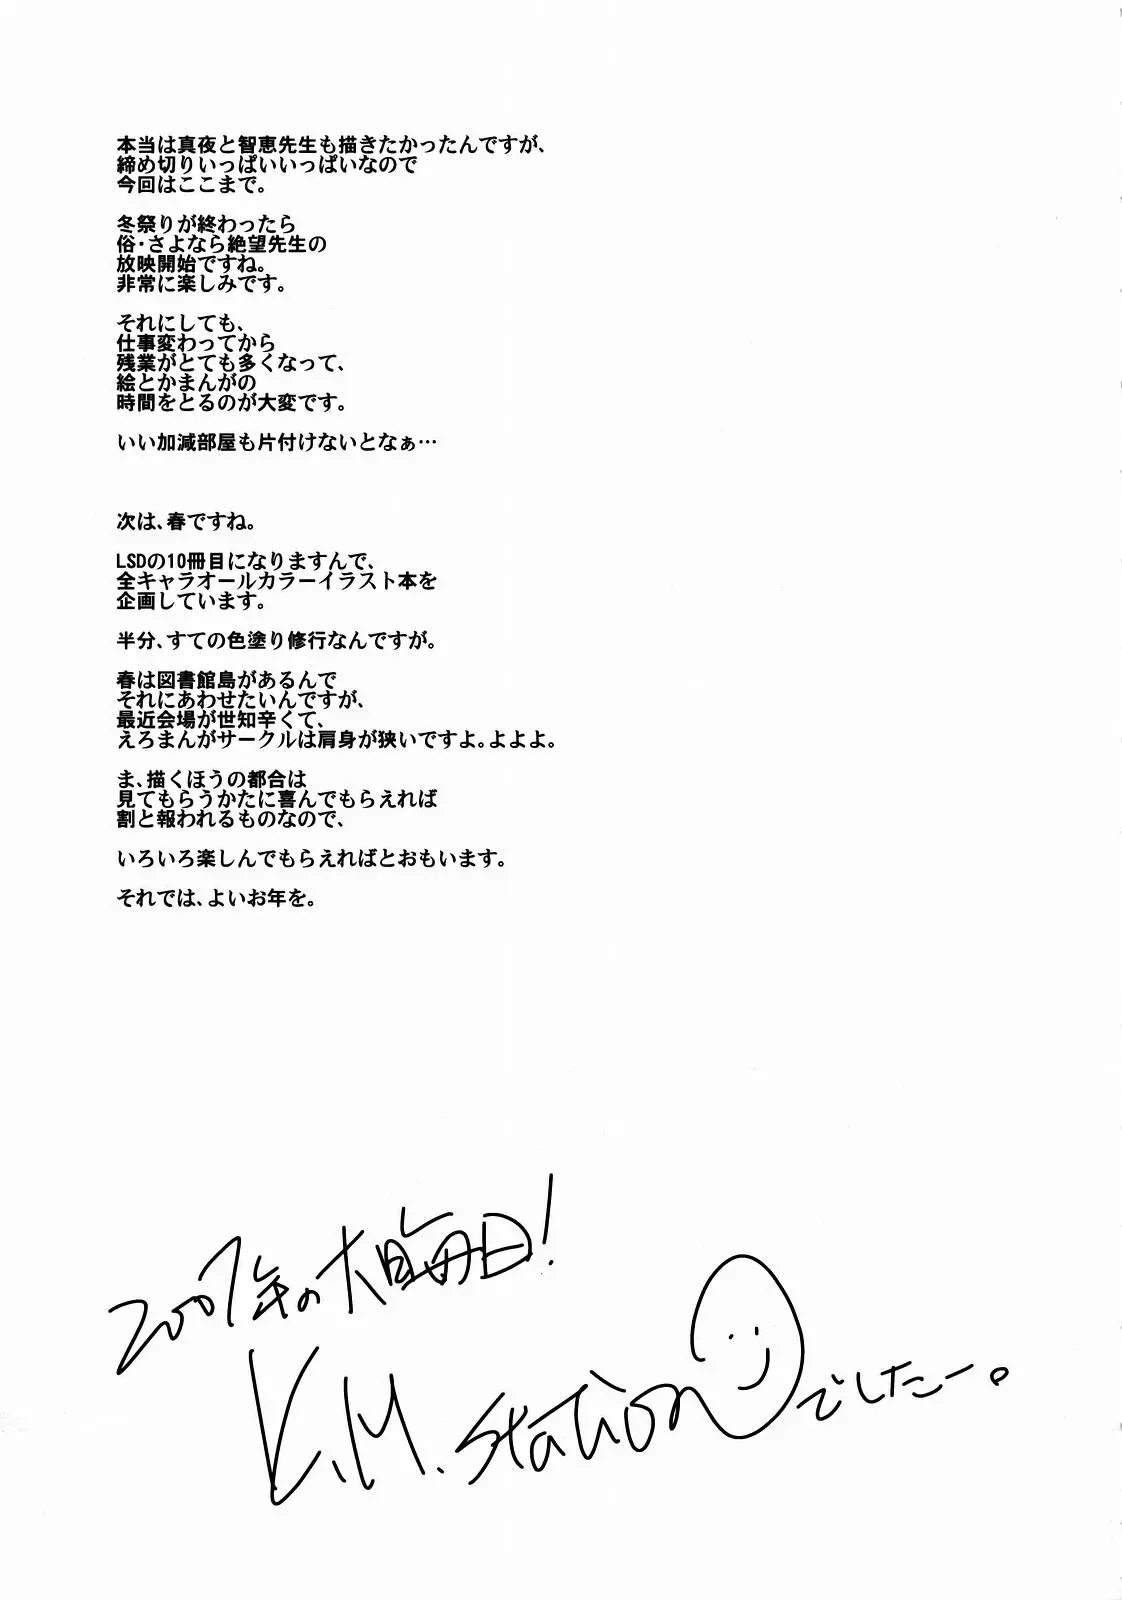 本当は真夜と智恵先生も描きたかったんですが、
締め切りいっぱいいっぱいなので
今回はここまで。
冬祭りが終わったら
俗・さよなら絶望先生の
放映開始ですね。
非常に楽しみです。
それにしても、
仕事変わってから
残業がとても多くなって、
絵とかまんがの
時間をとるのが大変です。
いい加減部屋も片付けないとなぁ…
次は、春ですね。
LSDの10冊目になりますんで、
全キャラオールカラーイラスト本を
企画しています。
半分、すての色塗り修行なんですが。
春は図書館島があるんで
それにあわせたいんですが、
最近会場が世知辛くて、
えろまんがサークルは肩身が狭いですよ。よよよ。
ま、描くほうの都合は
見てもらうかたに喜んでもらえれば
割と報われるものなので、
いろいろ楽しんでもらえればとおもいます。
それでは、よいお年を。
2007年の大晦日!
K.M.station でしたー。